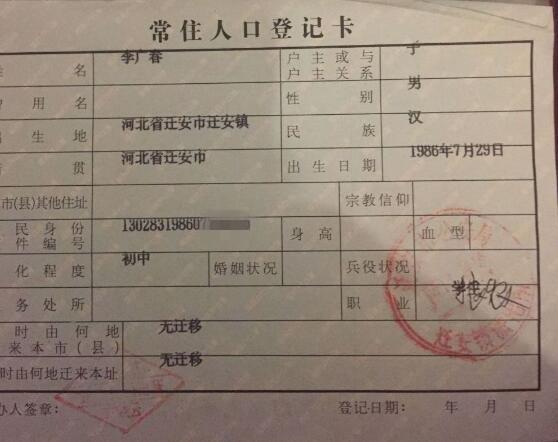 常住人口登记卡
名 李广春 户主或与户主关系 子
用名 性别 男
出生地 河北省迁安市迁安镇 民族 汉
贯 河北省迁安市 出生日期 1986年7月29日
市(县)其他住址 宗教信仰
民身份件编号 130283198607 身高 血型
化程度 初中 婚姻状况 兵役状况
务处所 职业 学生
时由何地来本市(县) 无迁移
时由何地迁来本址 无迁移
办人签章: 登记日期: 年 月 日
迁安